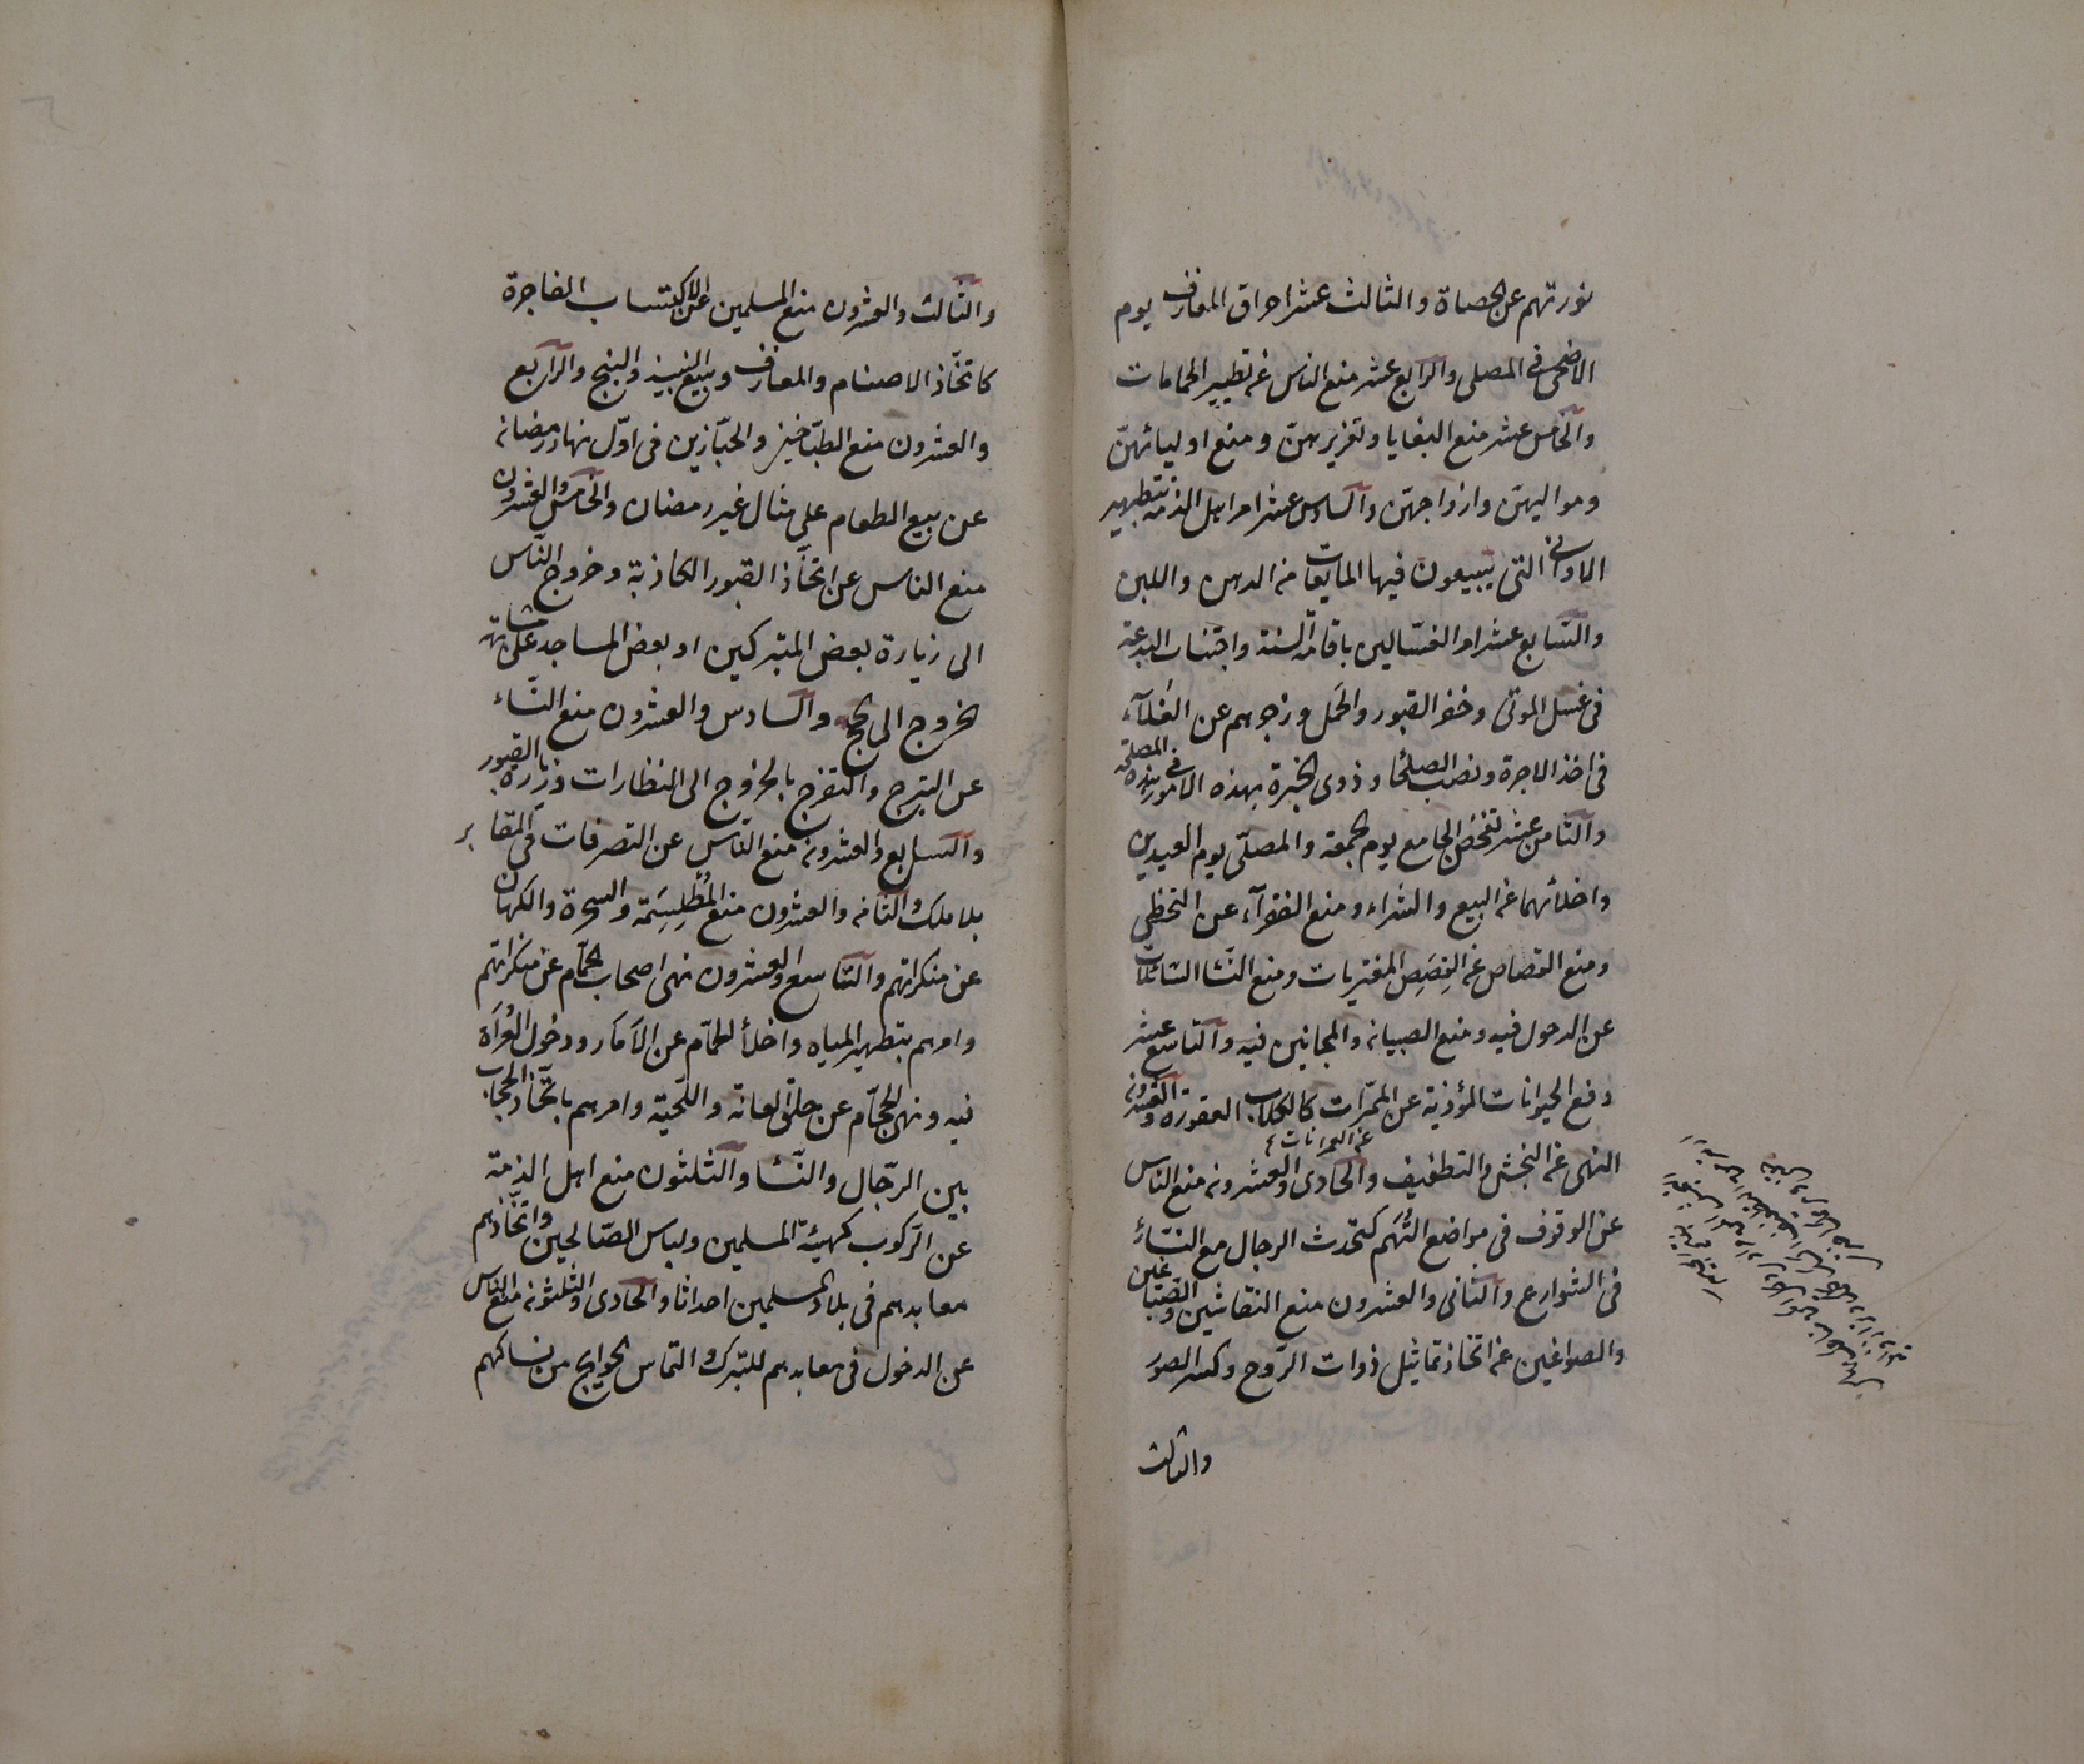 نورتهم عن الحصاة والثالث عشر احراق المعازف يوم
الاضحى في المصلى والرابع عشر منع الناس عن تطيير الحمامات
والخامس عشر منع البغايا وتعزيرهنّ ومنع اوليائهنّ
ومواليهنّ وازواجهنّ والسادس عشر امر اهل الذمة بتطهير
الاواني التي يبيعون فيها المايعات من الدهن واللبن
والسّابع عشر امر الغسّالين باقامة السنة واجتناب البدعة
في غسل الموتى وحفر القبور والحَمل وزجرهم عن الغلآء
في اخذ الاجرة ونصب الصلحا وذوى الخبرة بهذه الامور في هذه المصلحة
والثامن عشر تفحّص الجامع يوم الجمعة والمصلّى يوم العيدين
واخلائهما عن البيع والشراء ومنع الفقرآء عن التخطّي
ومنع القصاص عن القِصَصِ المفتريات ومنع النسّا السّائلات
عن الدخول فيه ومنع الصبيان والمجانين فيه والتاسع عشر
دفع الحيوانات المؤذية عن الممرّات كالكلاب العقورة والعشرون
النهى عن النجش والتطفيف والحادى والعشرون منع الناس
عن الوقوف في مواضع التُّهَم كتحدث الرجال مع النسّاء
في الشوارع والثانى والعشرون منع النقاشين والصبّاغين
والصواغين عن اتخاذ تماثيل ذوات الرّوح وكسر الصور
والثالث
والثالث والعشرون منع المسلمين عن الاكتساب الفاجرة
كاتخّاذ الاصنام والمعازف وبيع النبيذ والبنج والرابع
والعشرون منع الطبّاخين والخبّازين في اوّل نهار رمضان
عن بيع الطعام على مثال غير رمضان والخامس والعشرون
منع الناس عن اتخّاذ القبور الكاذبة وخروج النّاس
الى زيارة بعض المتبركين او بعض المساجد على مشابهة
الخروج الى الحج والسادس والعشرون منع النسّاء
عن التبرج والتفرج بالخروج الى النظارات وزيارة القبور
والسابع والعشرون منع النّاس عن التصرفات في المقابر
بلا ملك والثامن والعشرون منع المُطَلسِمَة والسحرة والكهان
عن منكراتهم والتاسع والعشرون نهى اصحاب الحمّام عن منكراتهم
وامرهم بتطهير المياه واخلأ الحمّام عن الاَمارد ودخول العُراة
فيه ونهى الحجّام عن حلق العانة واللّحية وامرهم باتّخاذ الحجاب
بين الرّجال والنسّا والثلثون منع اهل الذمة
عن الركوب كهيئة المسلمين ولباس الصّالحين واتخّاذهم
معابدهم في بلاد المسلمين احداثا والحادى والثلثون منع النّاس
عن الدخول في معابدهم للتبرك والتماس الحوايج من نساكهم